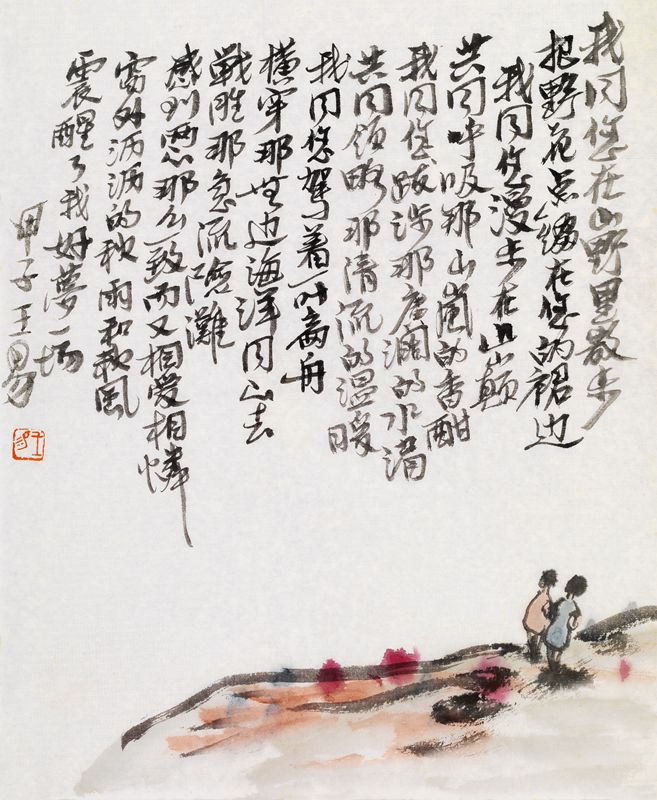 我同您在山野里散步
把野花点缀在您的裙边
我同您漫步在山颠
共同呼吸那山崗的香酣
我同您跋涉那广濶的水
共同领略那清流的温暖
我同您驾着一叶扁舟
横穿那無边海洋同山去
戰胜那急流险灘
感到两心那么一致而又相爱相憐
窗外沥沥的秋雨和秋風
震醒了我好夢一场
甲子王